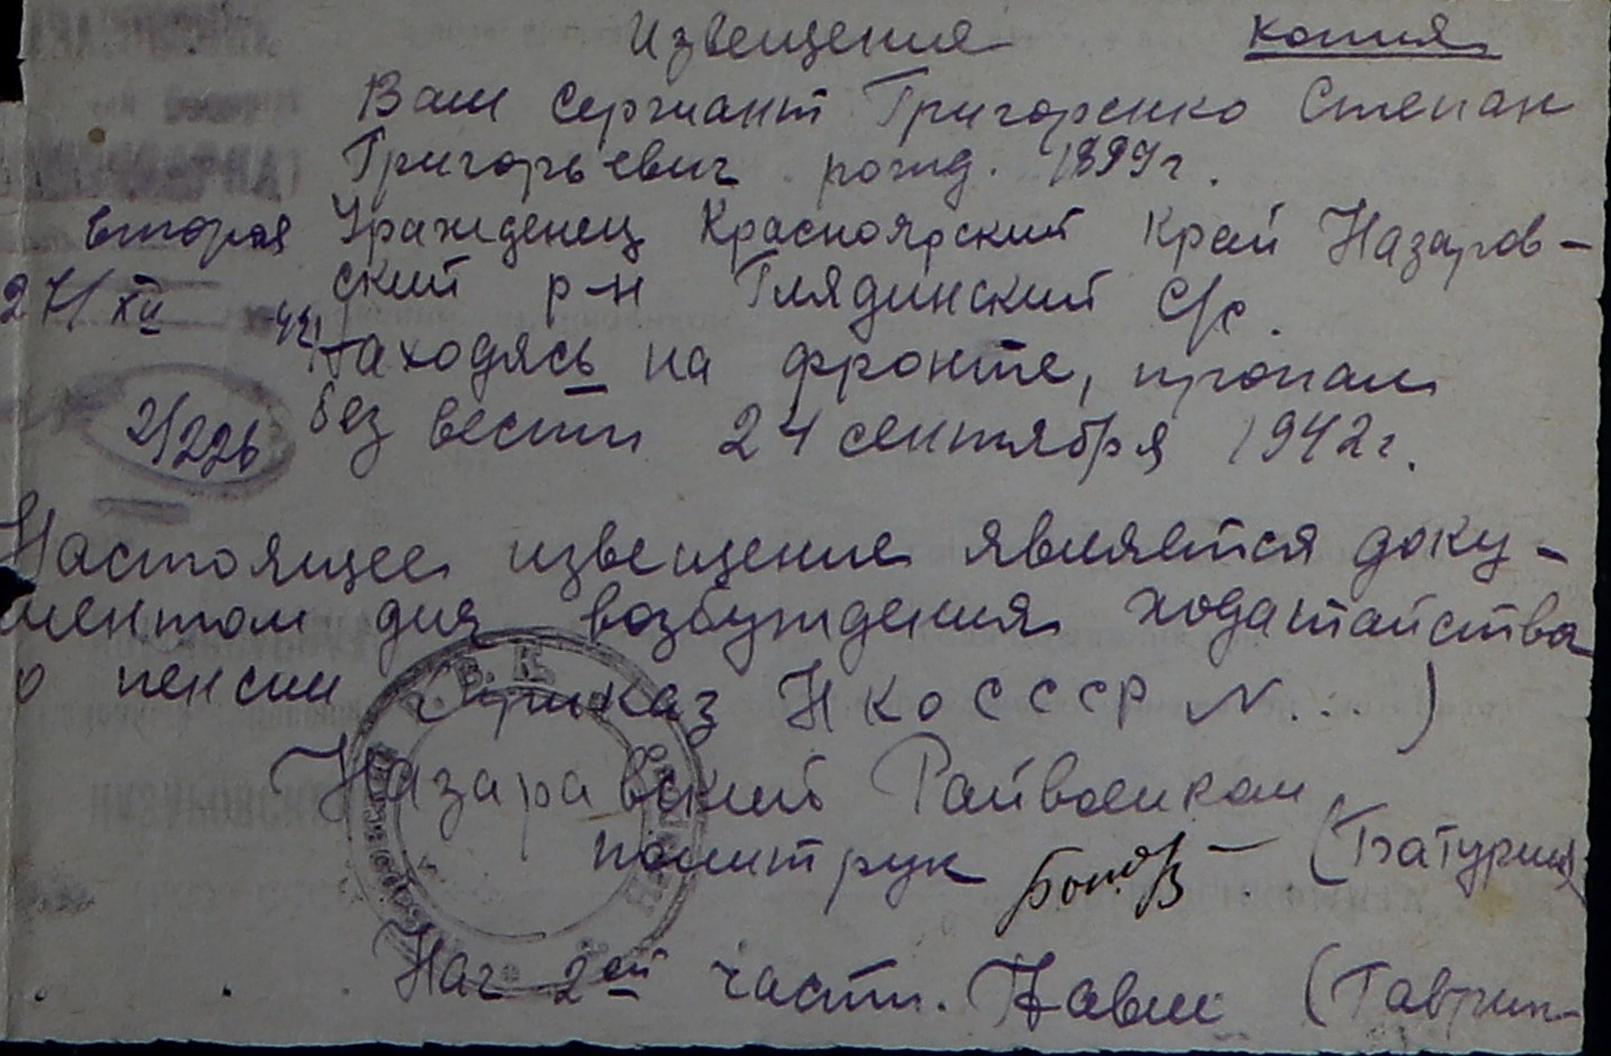 Извещение копия
Ваш Сержиант Григоренко Степан
Григорьевич рожд. 1899г.
Вторая
Уражденец Красноярский Край Назаров-
27/XII 42
ский р-н Глядинский С/с.
Находясь на фронте, пропал
2/226
без вести 24 сентября 1942г.
Настоящее извещение является доку-
ментом для возбуждения ходатайства
о пенсии (Приказ НКО СССР N...)
Назаравский Райваенком
политрук (Батурин)
Нач 2ой части. (Гаврин-